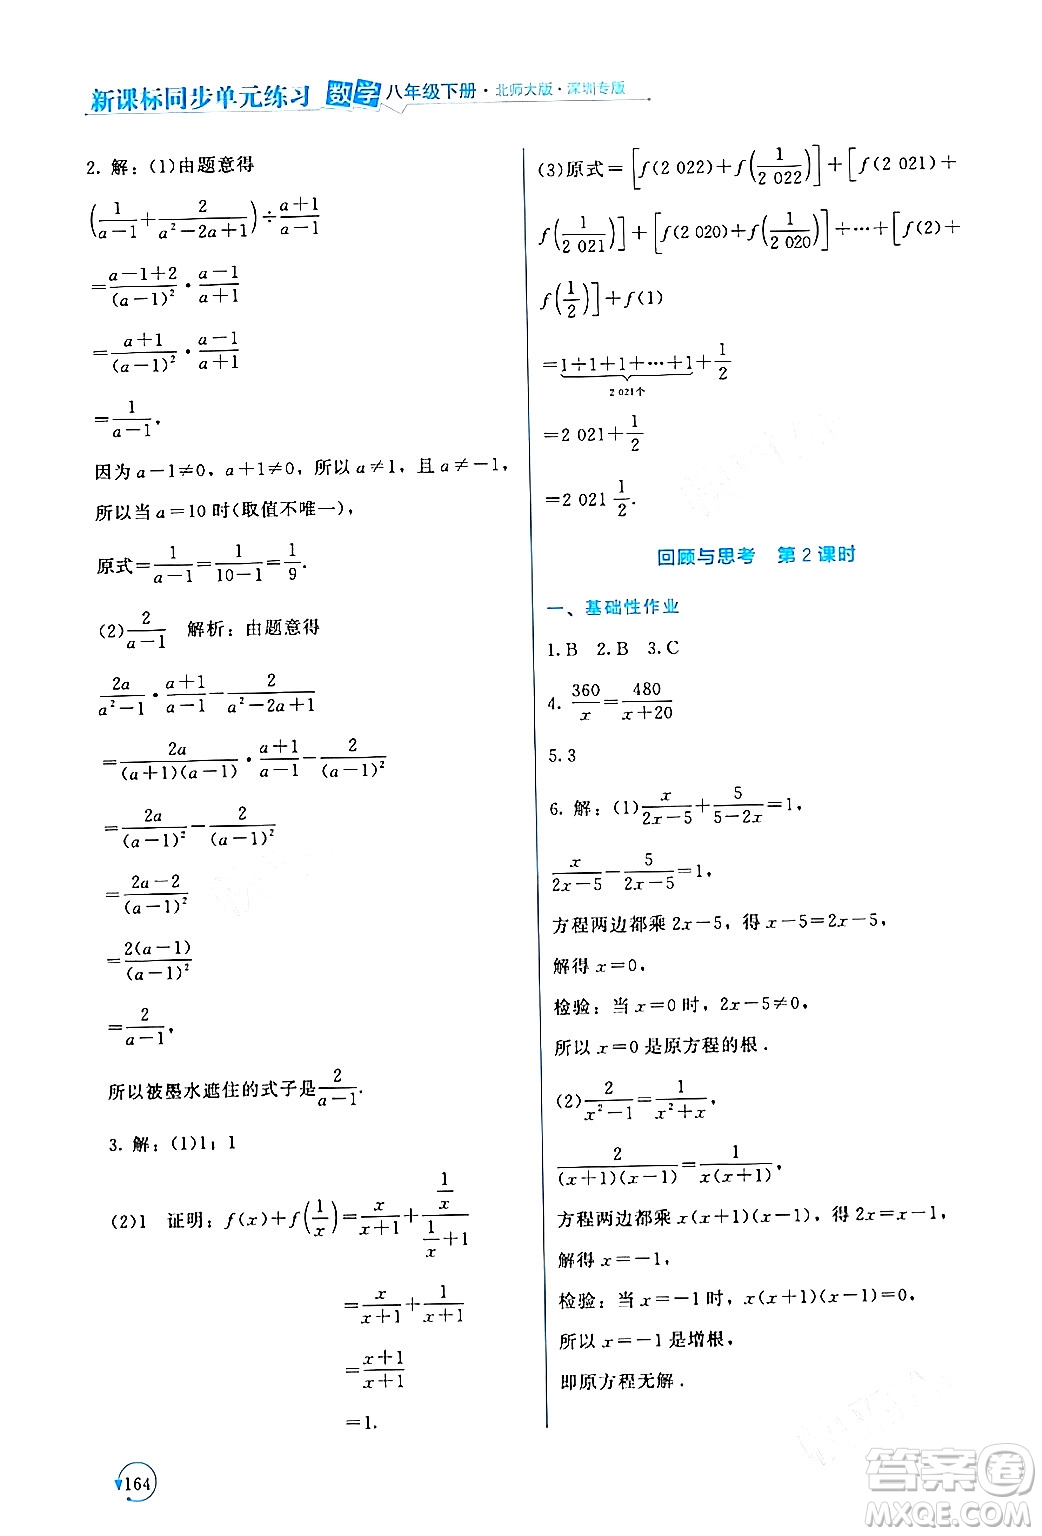 新课标同步单元练习 数学 八年级下册·北师大版·深圳专版
2. 解：(1)由题意得
(1/(a−1)+2/(a²−2a+1))÷(a+1)/(a−1)
=(a−1+2)/(a−1)²·(a−1)/(a+1)
=(a+1)/(a−1)²·(a−1)/(a+1)
=1/(a−1)，
因为 a−1≠0，a+1≠0，所以 a≠1，且 a≠−1，
所以当 a=10 时(取值不唯一)，
原式=1/(a−1)=1/(10−1)=1/9.
(2)2/(a−1) 解析：由题意得
2a/(a²−1)·(a+1)/(a−1)−2/(a²−2a+1)
=2a/((a+1)(a−1))·(a+1)/(a−1)−2/(a−1)²
=2a/(a−1)²−2/(a−1)²
=(2a−2)/(a−1)²
=2(a−1)/(a−1)²
=2/(a−1)，
所以被墨水遮住的式子是2/(a−1).
3. 解：(1)1；1
(2)1 证明：f(x)+f(1/x)=x/(x+1)+(1/x)/(1/x+1)
=x/(x+1)+1/(x+1)
=(x+1)/(x+1)
=1.
(3)原式=[f(2 022)+f(1/2 022)]+[f(2 021)+
f(1/2 021)]+[f(2 020)+f(1/2 020)]+···+[f(2)+
f(1/2)]+f(1)
=1+1+1+···+1+1/2
2 021个
=2 021+1/2
=2 021 1/2.
回顾与思考 第 2 课时
一、基础性作业
1. B 2. B 3. C
4. 360/x=480/(x+20)
5. 3
6. 解：(1)x/(2x−5)+5/(5−2x)=1，
x/(2x−5)−5/(2x−5)=1，
方程两边都乘 2x−5，得 x−5=2x−5，
解得 x=0，
检验：当 x=0 时，2x−5≠0，
所以 x=0 是原方程的根．
(2)2/(x²−1)=1/(x²+x)，
2/((x+1)(x−1))=1/(x(x+1))，
方程两边都乘 x(x+1)(x−1)，得 2x=x−1，
解得 x=−1，
检验：当 x=−1 时，x(x+1)(x−1)=0，
所以 x=−1 是增根，
即原方程无解．
164
答案圈
MXQE.COM